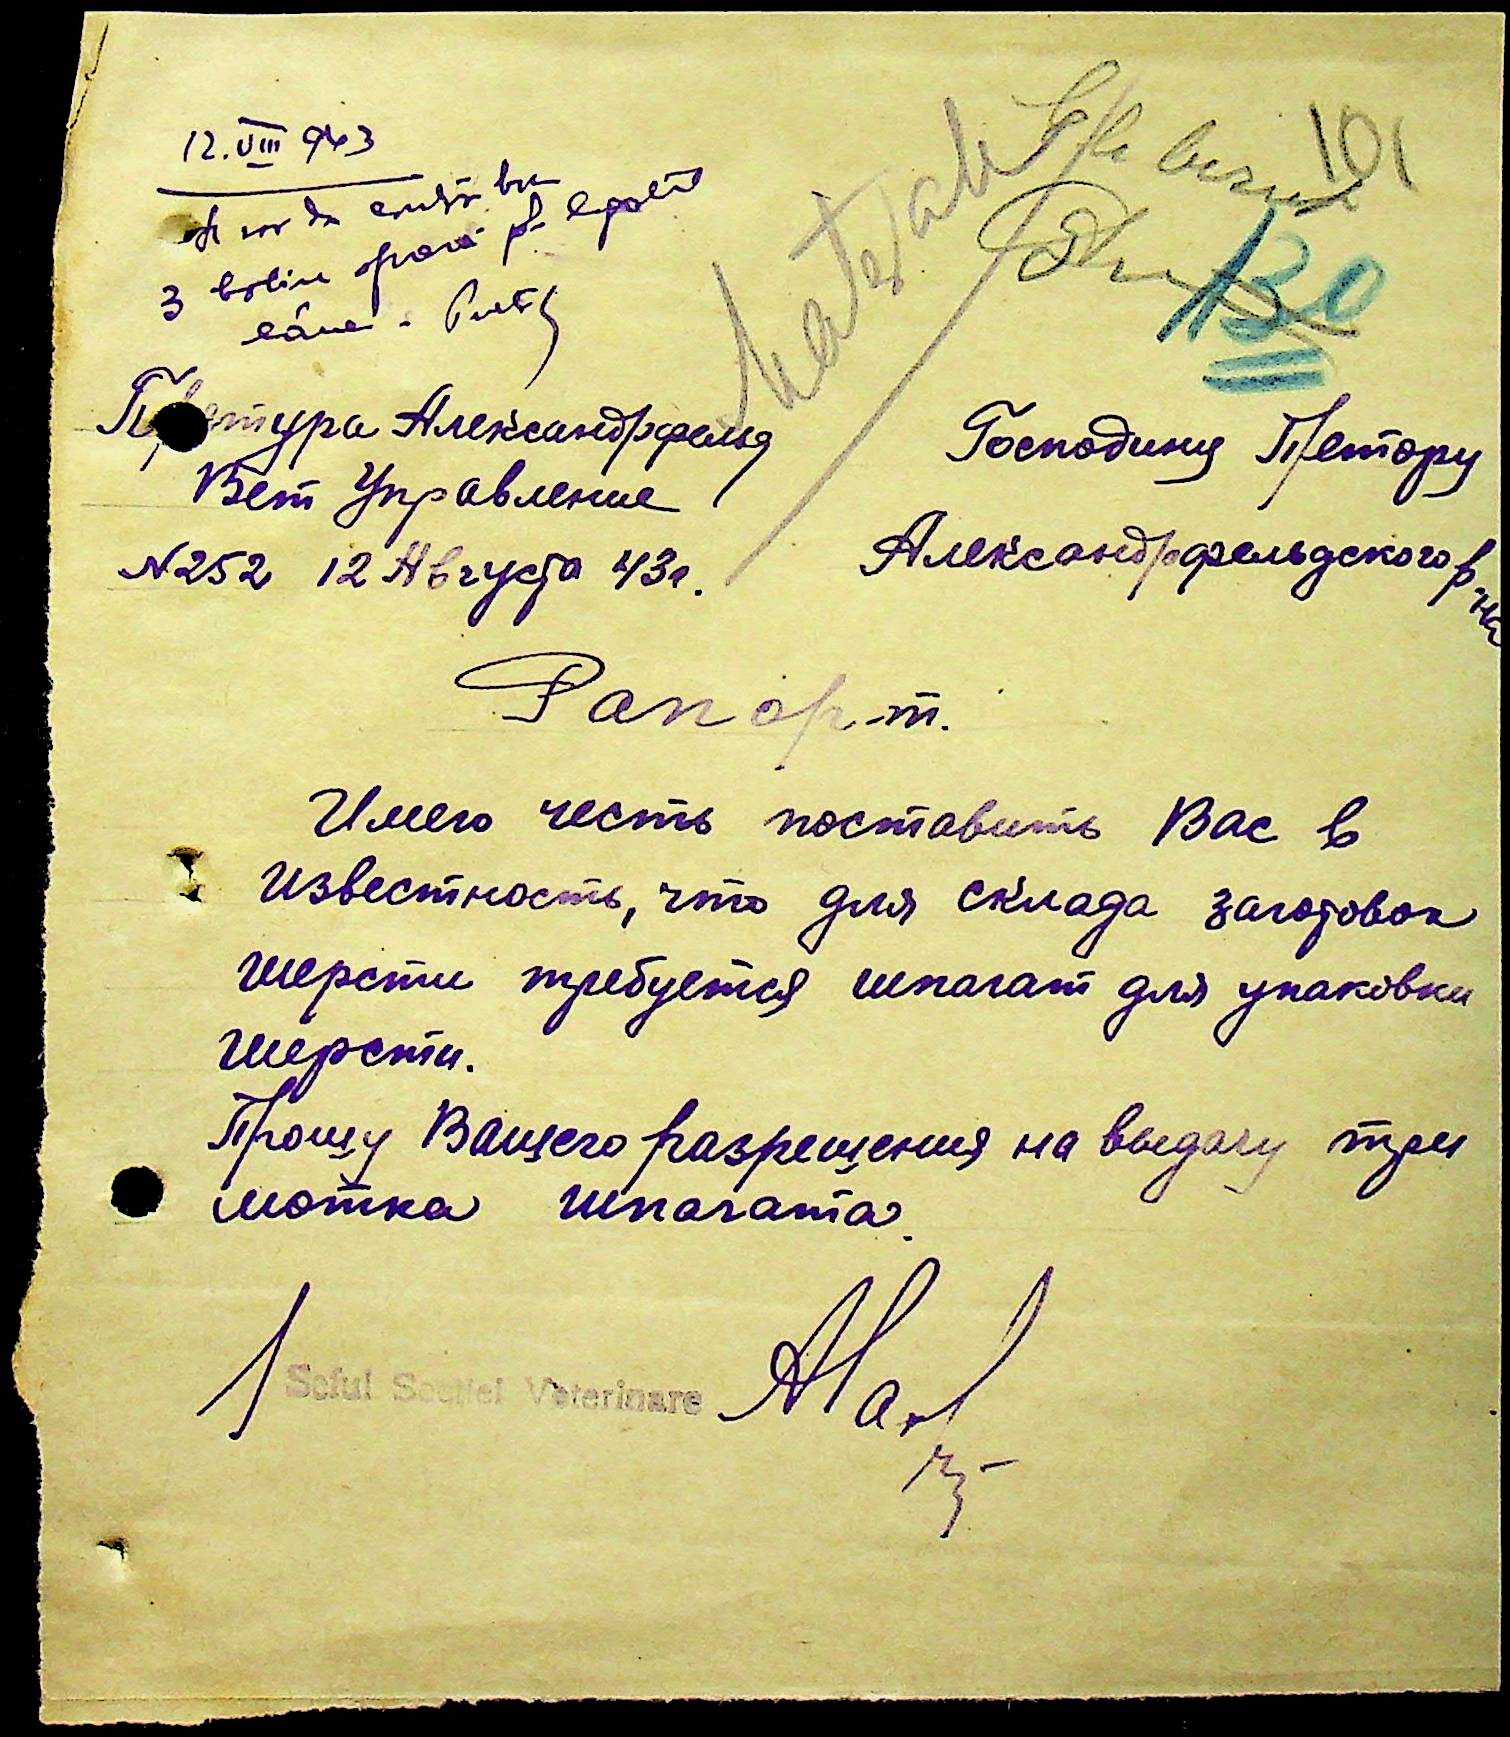 12. VIII 943
3
101
130
Претура Александрфельд
Вет Управление
N 252 12 Августа 43г.
Господину Претору
Александрфельдского р-на
Рапорт.
Имею честь поставить Вас в
известность, что для склада заготовок
шерсти требуется шпагат для упаковки
шерсти.
Прошу Вашего разрешения на выдачу три
мотка шпагата.
Seful Sectiei Veterinare